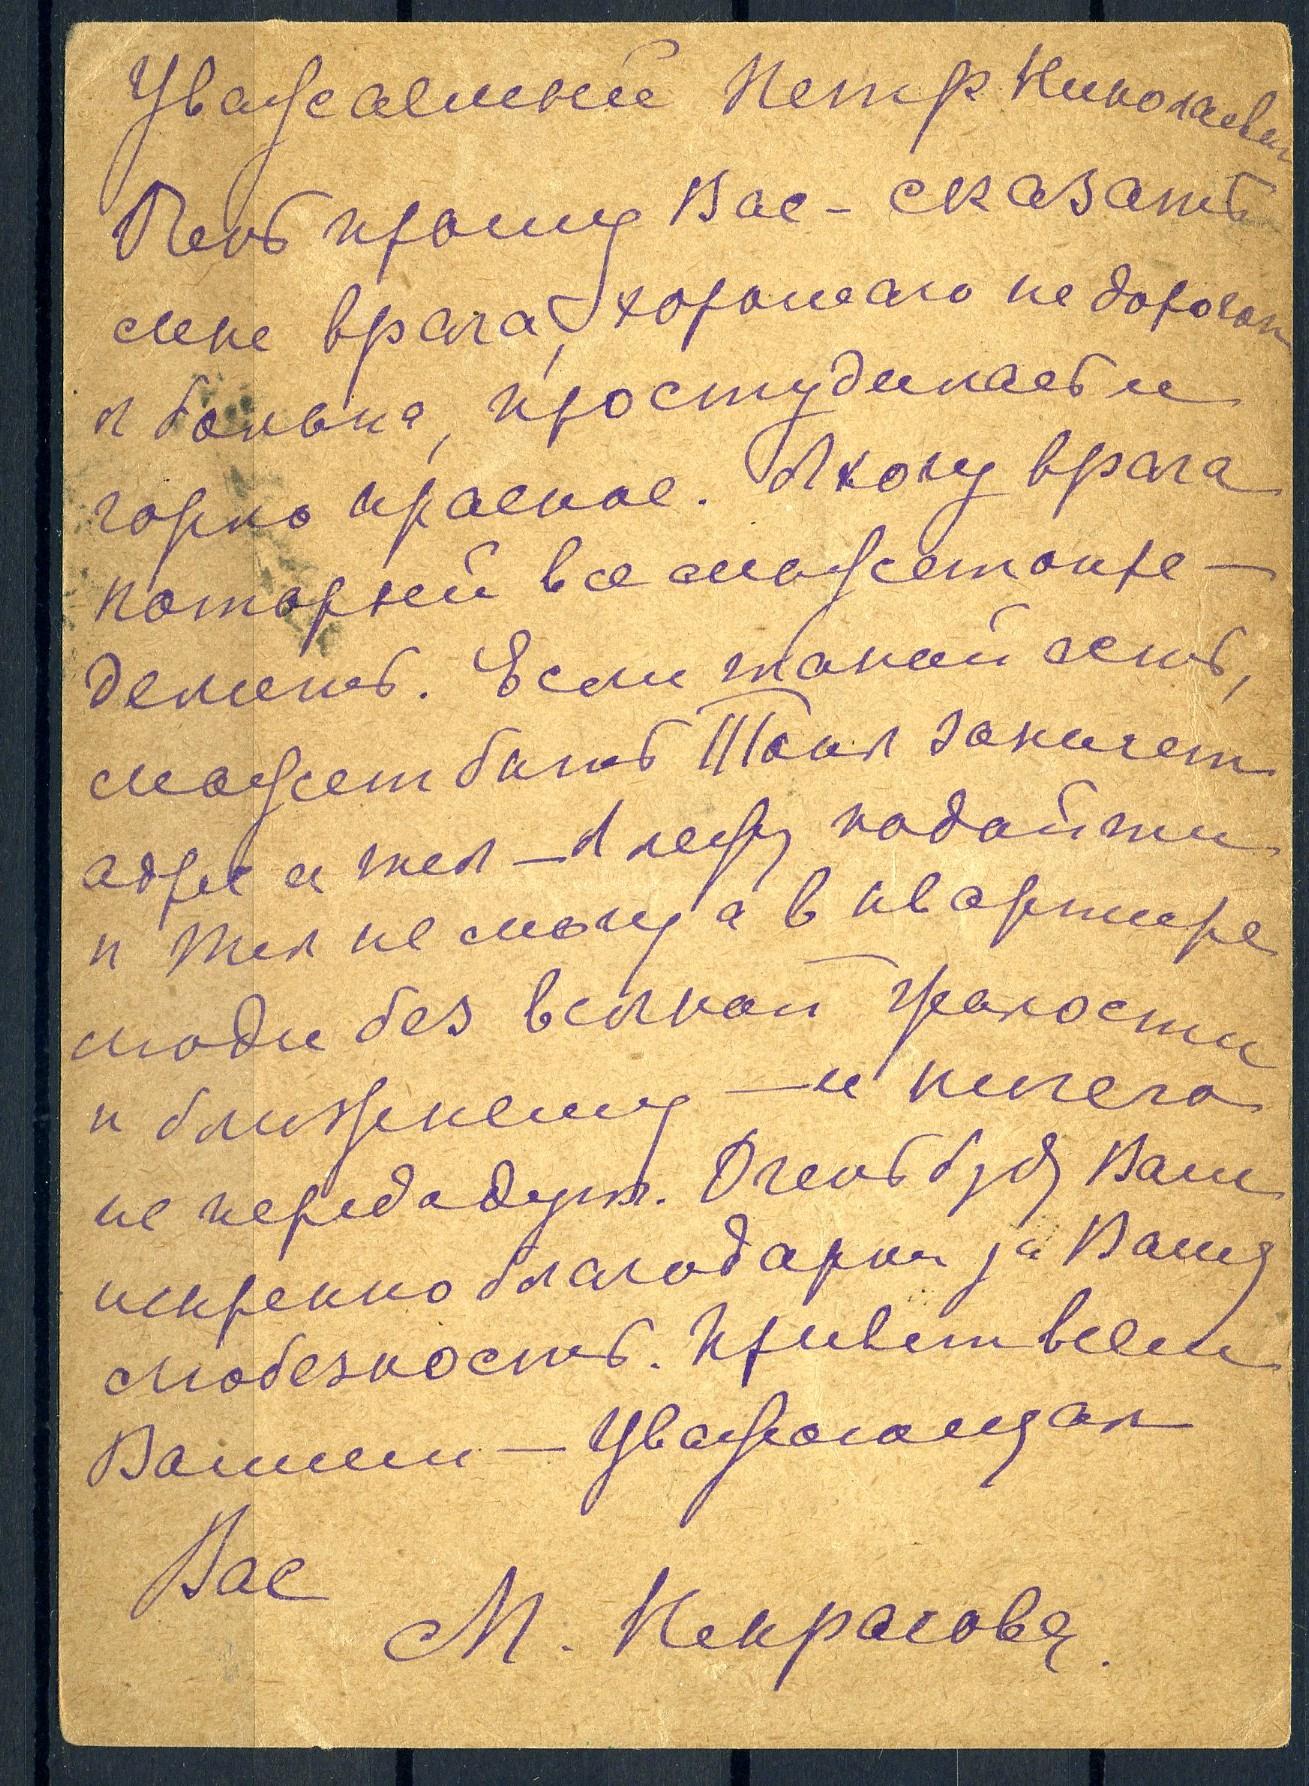 Уважаемый Петр Николаевич
Очень прошу Вас – сказать
мне врача, хорошаго не дорогого
я больна, простудилась и
горло красное. Я хочу врача
который все может опре–
делить. Если такой есть,
может быть Таня запишет
адрес и тел – Я лежу подойти
к тел не могу а в квартире
люди без всякой жалости
к ближнему – и ничего
не передадут. Очень буду Вам
искренно благодарна за Вашу
любезность. Привет всем
Вашим – Уважающая
Вас
М. Некрасова.